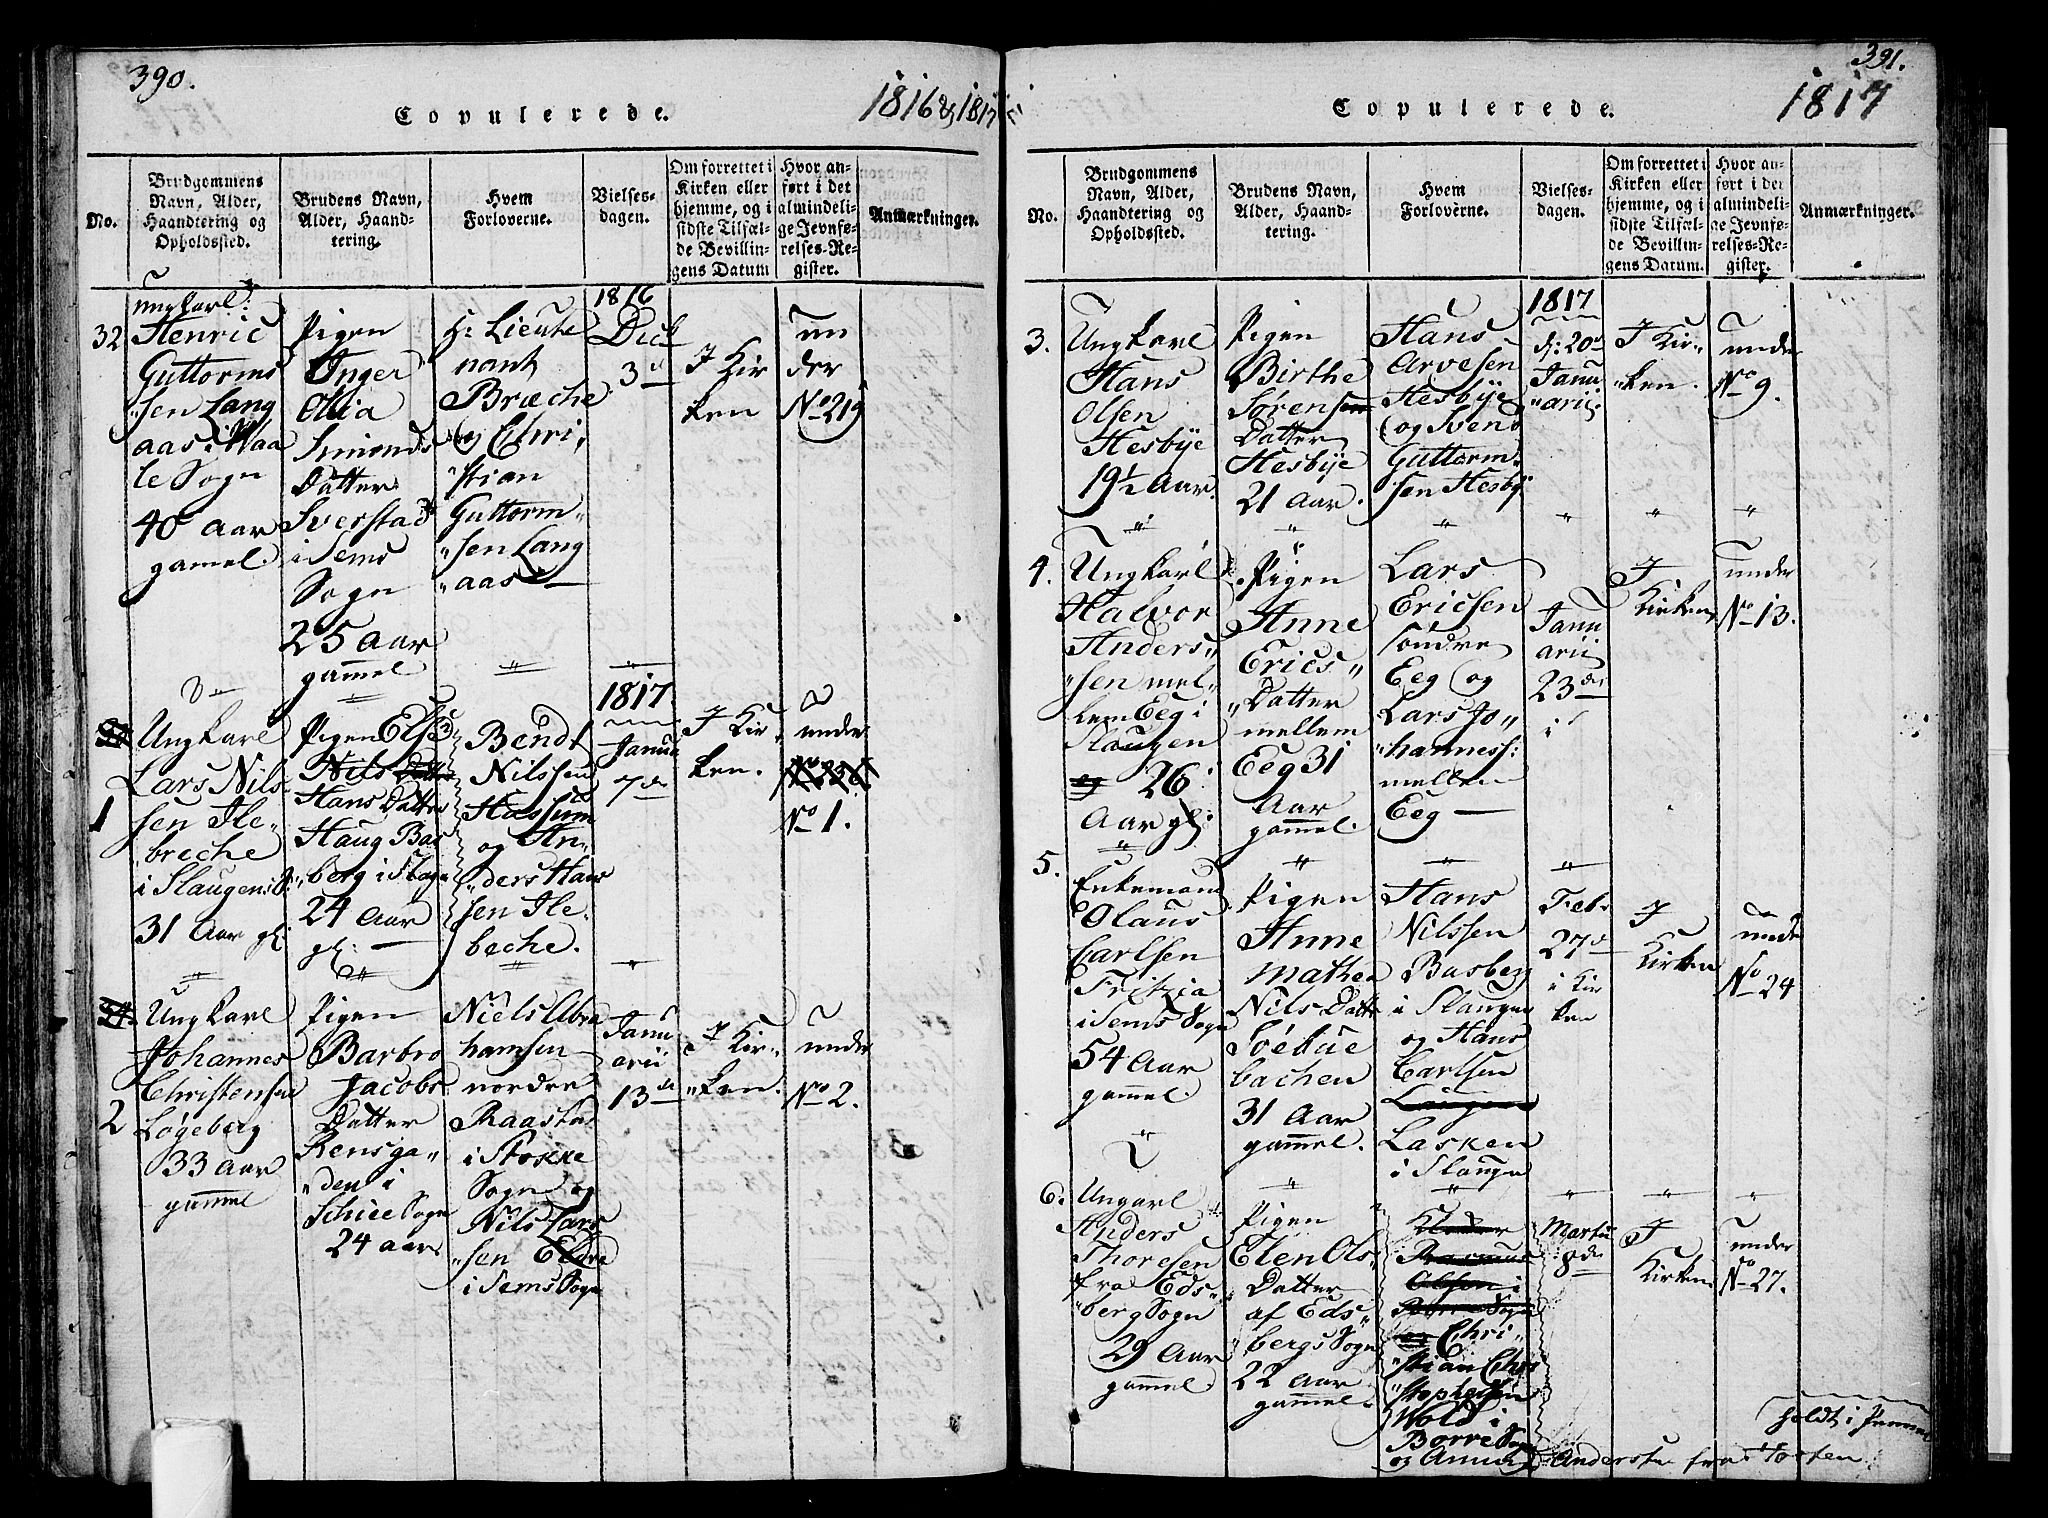 390.
Copulerede.
1816 & 1817
No.
Brudgommens Navn, Alder, Haandtering og Opholdssted.
Brudens Navn, Alder, Haandtering.
Hvem Forloverne.
Vielsesdagen.
Om forrettet i Kirken eller hjemme, og i sidste Tilfælde Bevillingens Datum
Hvor anført i det almindelige Jevnførelses-Register.
Anmærkninger.
32
Ungkarl:
Henric
Guttorms
"sen Lang
aas i Waa
le Sogn
40 Aar
gamel.
Pigen
Inger
Olia
Simonds
Datter
Sverstad
i Sems
Sogn
25 Aar
gammel
H: Lieute
nant
Bræche
og Chri,
"stian
Guttorm"
"sen Lang
"aas
1816
Dec
3d
I Kir
ken
un
der
No 219
1
Ungkarl
Lars Nils
sen Ile"
breche
i Slaugens S:
31 Aar gl:
Pigen Else
Nils Datter
Hans Datter
Haug Bas
"berg i Slagn
24 Aar
gl:
Bendt
Nilssen
Hassum
og An"
"ders Hans
sen Ile"
beche.
1817
Janua
7de
I Kir"
ken.
under
No 1.
2
Ungkarl
Johannes
Christensen
Løgeberg
33 Aar
gammel
Pigen
Barbro
Jacobs
Datter
Rensga"
"den i
Schiee Sogn
24 aar
Niels Abra
hamsen
nordre
Raastad
i Stokke
Sogn og
Nils Lars
"sen Eldre
i Sems Sogn
Janu
arii
13de
I Kir"
"ken.
under
No 2.
391.
Copulerede.
1817
No.
Brudgommens Navn, Alder, Haandtering og Opholdssted.
Brudens Navn, Alder, Haandtering.
Hvem Forloverne.
Vielsesdagen.
Om forrettet i Kirken eller hjemme, og i sidste Tilfælde Bevillingens Datum.
Hvor anført i det almindelige Jevnførelses-Register.
Anmærkninger.
3.
Ungkarl
Hans
Olsen
Hesbye
19½ Aar.
Pigen
Birthe
Sørensen
Datter
Hesbye
21 Aar.
Hans
Arvesen
Hesbye
og Svend
Guttorm"
sen Hesby
1817
d: 20de
Janu
"arii
I Kir"
"ken.
under
No 9.
4.
Ungkarl
Halvor
Anders"
"sen mel"
lem Eeg i
Slaugen
26
Aar gl:
Pigen
Anne
Erics"
"Datter
mellem
Eeg 31
Aar
gammel.
Lars
Ericsen
søndre
Eeg og
Lars Jo"
"hanness:
mellem
Eeg
Janu
arii
23de
I
Kirken
under
No 13.
5.
Enkemand
Olaus
Carlsen
Fritzia
i Sems Sogn
54 Aar
gammel.
Pigen
Anne
Mathea
Nils Datter
Søebue
bachen
31 Aar
gammel.
Hans
Nilssen
Basberg
i Slaugen
og Hans
Carlsen
Lasken
i Slaugn
Febr
27de
i Kir
ken
I
Kirken
under
No 24
6.
Ungarl
Anders
Thoresen
fra Eds"
"berg Sogn
29 Aar
gammel.
Pigen
Elen Ols"
Datter
af Eds"
bergs Sogn
22 Aar
gammel.
Rasmus
Olsen i
Borre Sogn
og Chri"
"stian Chri
stophersen
Wold i
Borre Sogn
og Anund Anderssen fra Torsen
holdt i
Martii
8de
I
Kirken
under
No 27.